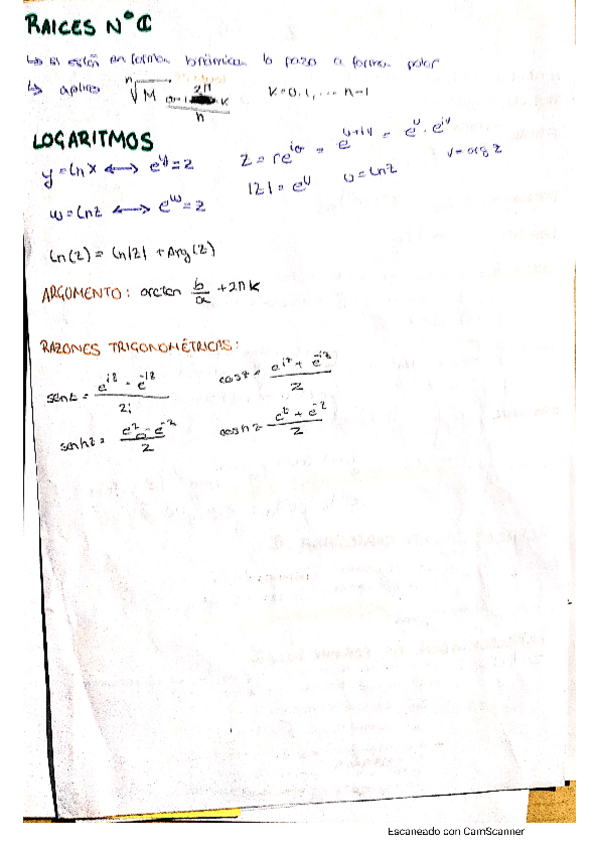 RAICES Nº ℂ
↳ si están en forma binómica lo paso a forma polar
↳ aplico ⁿ√M 2π k K=0,1,... n-1
n
LOGARITMOS
y = Ln x ⟷ e^y = z
z = re^iσ = e^u+iv = e^u · e^iv
|z| = e^u u = Ln z v = arg z
w = Ln z ⟷ e^w = z
Ln(z) = Ln|z| + Arg(z)
ARGOMENTO: arctan b/a + 2πK
RAZONES TRIGONOMÉTRICAS:
senz = e^iz - e^-iz / 2i cosz = e^iz + e^-iz / 2
senhz = e^z - e^-z / 2 coshz = e^z + e^-z / 2
Escaneado con CamScanner